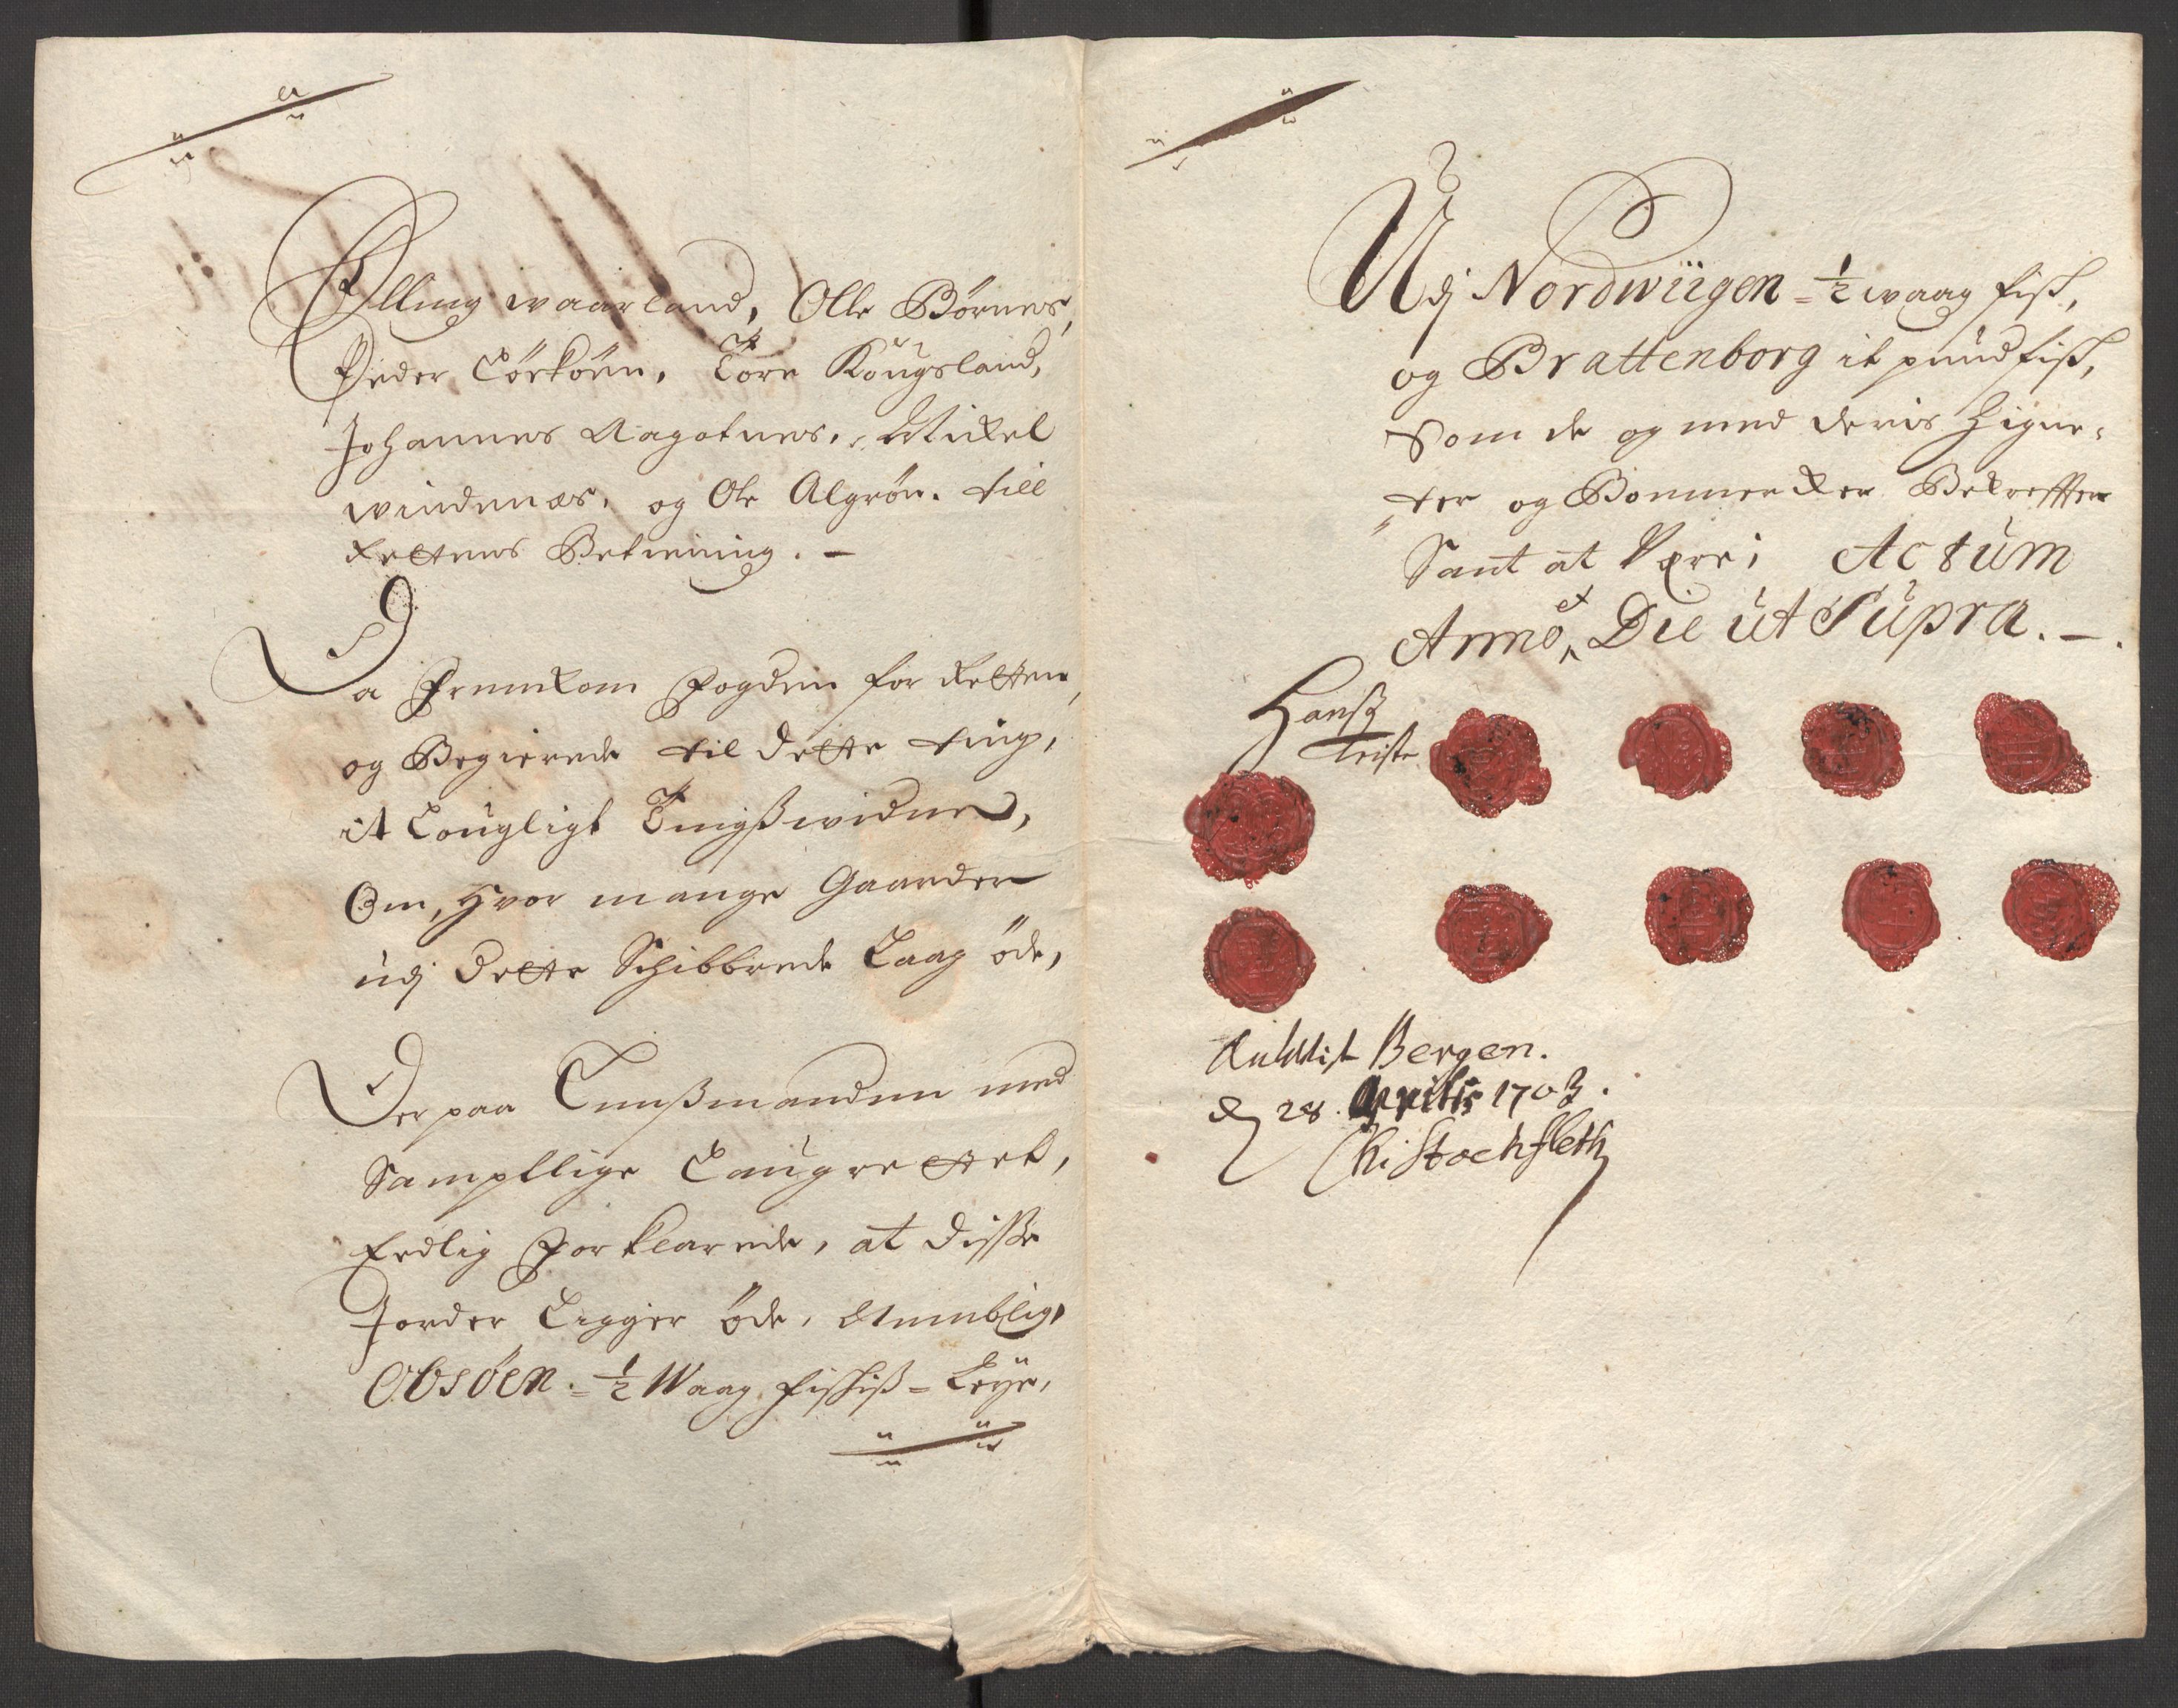 Elling waarland, Olle Börnes,
Peder Törköen, Tore Kougsland,
Johannes Aagotnes, Mickel
windenæs, og Ole Algröen. till
Rettens Betiening. –
Da Fremkom Fogden for Retten,
og Begierede til dette ting,
it Lougligt Tingsßwidne,
Om, Hvor mange Gaarder
udj dette Schibbrede Laag öde,
Der paa Lennßmanden med
Samptlige Laugrettet,
Erdlig Forklarede, at disse
Jorder Ligger öde, Nemblig,
Obsöen = ½ Waag fischiß = Leye,
Udj Nordwiigen = ½ waag fisk,
og Brattenborg it pund fisk,
Som de og med deris Zigne-
ter og Bommercker Bekreffter
Sant at Være; Actum
Anno et Die ut Supra. –
Hanß
Teiste
Bergen.
d 28. Aprilis 1703.
Chr Stochfleth